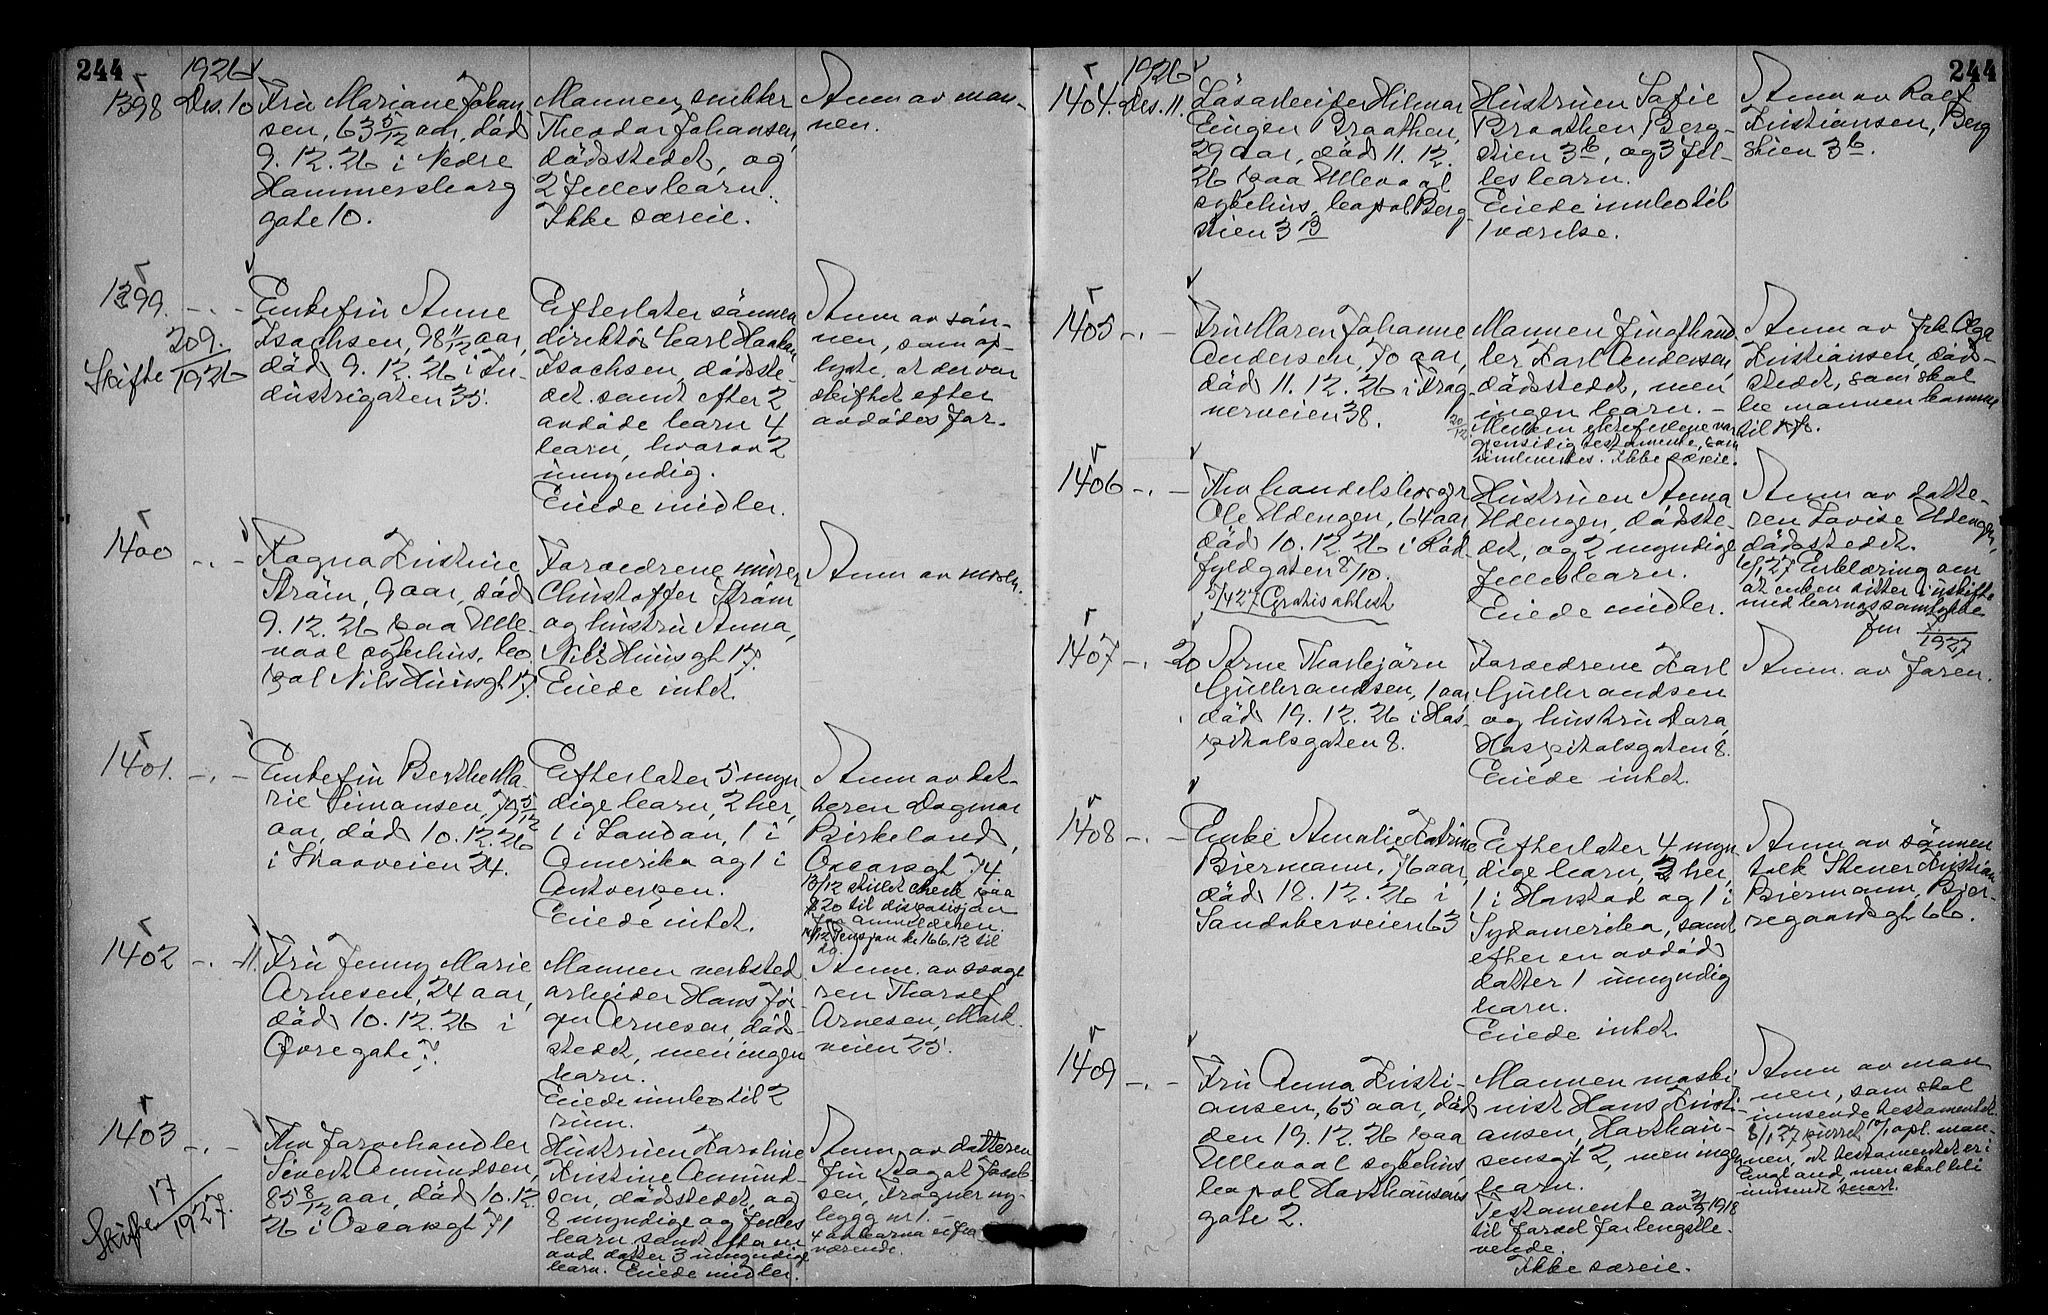 244
1926
1398 Des. 10
Fru Mariane Johan-
sen, 63 5/12 aar, död
9.12.26 i Nedre
Hammersborg
gate 10.
Mannen, snekker
Theodor Johansen,
dödsstedet, og
2 fellesbarn.
Ikke særeie.
Anm av man-
nen.
1399. -.-
Skifte 209./1926
Enkefru Anne
Isachsen, 98 11/12 aar,
död 9.12.26 i In-
dustrigaten 35.
Efterlater sönnen
direktör Carl Haakon
Isachsen, dödsste-
det samt efter 2
avdöde barn 4
barn, hvorav 2
umyndig.
Eiede midler.
Anm av sön-
nen, som op-
lyste, at der var
skiftet efter
avdödes far.
1400 -.-
Ragna Kristine
Ström, 9 aar, död
9.12.26 paa Ulle-
vaal sykehus, bo
pæl Nils Huusgt 17.
Forældrene murer
Christoffer Ström
og hustru Anna,
Nils Huusgt 17.
Eiede intet.
Anm av moren.
1401. -.-
Enkefru Berthe Ma-
rie Simonsen, 79 5/12
aar, död 10.12.26
i Maaveien 24.
Efterlater 5 myn-
dige barn, 2 her,
1 i London, 1 i
Amerika og 1 i
Antverpen.
Eiede intet.
Anm av dat-
teren Dagmar
Birkeland,
Oscarsgt 74
13/12 stillet check paa
$20 til disposisjon
for anmelderen.
14/12 Pensjon kr 166.12 til
do.
1402 -.- 11.
Fru Jenny Marie
Arnesen, 24 aar,
död 10.12.26 i
Övregate 7.
Mannen verksted
arbeider Hans Jör-
gen Arnesen, död-
stedet, men ingen
barn.
Eiede innbo til 2
rum.
Anm. av svoge
ren Thorolf
Arnesen, Mark-
veien 25.
1403 -.-
Skifte 17/1927.
Fhv farvehandler
Sivert Amundsen,
85 8/12 aar, död 10.12.
26 i Oscarsgt 71
Hustruen Karoline
Kristine Amund-
sen, dödsstedet, og
8 myndige og felles
barn samt efter en
avd. datter 3 umyndige
barn. Eiede midler.
Anm av datteren
fru Aagot Jacob
sen, Frogner ny-
bygg nr 1. -
4 av barna er fra
værende.
244
1926
1404. Des. 11.
Lösarbeider Hilmar
Eugen Braathen,
29 aar, död 11.12.
26 paa Ullevaal
sykehus, bopæl Berg-
stien 3 B
Hustruen Sofie
Braathen Berg-
stien 3 b, og 3 fel-
les barn.
Eiede innbo til
1 værelse.
Anm av Rolf
Kristiansen, Berg
stien 3 b.
1405 -.-
Fru Maren Johanne
Andersen, 70 aar,
död 11.12.26 i Frog-
nerveien 38.
Mannen Jingfhand
ler Karl Andersen,
dödsstedet, men
ingen barn. -
20/12 Mellem ektefellene var
gjensidig testamente, som
Ikke særeie.
Anm av frk Olga
Kristiansen, död-
stedet, som skal
be mannen komme
til op.
1406 -.-
Fhv handelsborger
Ole Udengen, 64 aar
död 10.12.26 i Röd-
fyldgaten 8/10.
5/4 27 Gratis attest
Hustruen Anna
Udengen, dödsste-
det, og 2 myndige
fellesbarn.
Eiede midler.
Anm av datte-
ren Lovise Udengen,
dödsstedet.
6/1 27 Erklæring om
at enken sitter i uskifte
med barnas samtykke
Jnr /1927
1407 -.- 20
Arne Thorbjörn
Gulbrandsen, 1 aar
död 19.12.26 i Hos-
pitalsgaten 8.
Forældrene Karl
Gulbrandsen
og hustru Dora,
Hospitalsgaten 8.
Eiede intet.
Anm. av faren.
1408 -.-
Enke Amalie Katrine
Biermann, 76 aar,
död 18.12.26 i
Sandakerveien 63
Efterlater 4 myn-
dige barn, 2 her,
1 i Harstad og 1 i
Sydamerika, samt
efter en avdöd
datter 1 umyndig
barn.
Eiede intet
Anm av sönnen
tolk Stener Kristian
Biermann, Bjer-
regaardsgt 66.
1409 -.-
Fru Anna Kristi-
ansen, 65 aar, död
den 19.12.26 paa
Ullevaal sykehus
bopæl Haxthausens
gate 2.
Mannen maski-
nist Hans Kristi-
ansen, Haxthau-
sensgt 2, men ingen
barn.
Testamente av 1918
til fordel for lengstle-
vende.
Ikke særeie.
Anm av man
nen, som skal
innsende testamentet.
8/1 27 purret 10/1 opl. man-
nen, at testamentet er i
England, men skal bli
innsendt snart.